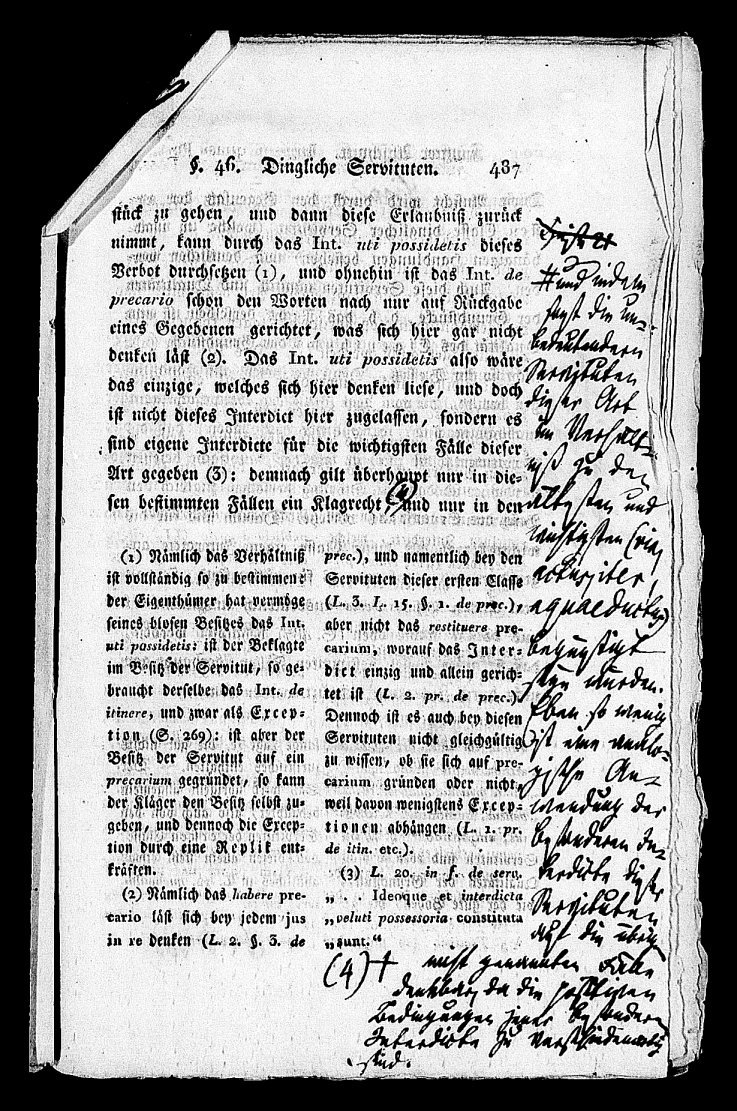 §. 46. Dingliche Servituten. 487
stück zu gehen, und dann diese Erlaubniß zurück
nimmt, kann durch das Int. uti possidetis dieses
Verbot durchsetzen (1), und ohnehin ist das Int. de
precario schon den Worten nach nur auf Rückgabe
eines Gegebenen gerichtet, was sich hier gar nicht
denken läst (2). Das Int. uti possidetis also wäre
das einzige, welches sich hier denken liese, und doch
ist nicht dieses Interdict hier zugelassen, sondern es
sind eigene Interdicte für die wichtigsten Fälle dieser
Art gegeben (3): demnach gilt überhaupt nur in die-
sen bestimmten Fällen ein Klagrecht, (4) und nur in den
(1) Nämlich das Verhältniß
ist vollständig so zu bestimmen:
der Eigenthümer hat vermöge
seines blosen Besitzes das Int.
uti possidetis: ist der Beklagte
im Besitz der Servitut, so ge-
braucht derselbe das Int. de
itinere, und zwar als Excep-
tion (S. 269): ist aber der
Besitz der Servitut auf ein
precarium gegründet, so kann
der Kläger den Besitz selbst zu-
geben, und dennoch die Excep-
tion durch eine Replik ent-
kräften.
(2) Nämlich das habere pre-
cario läst sich bey jedem jus
in re denken (L. 2. §. 3. de
prec.), und namentlich bey den
Servituten dieser ersten Classe
(L. 3. L. 15. §. 1. de prec.),
aber nicht das restituere pre-
carium, worauf das Inter-
dict einzig und allein gerich-
tet ist (L. 2. pr. de prec.).
Dennoch ist es auch bey diesen
Servituten nicht gleichgültig
zu wissen, ob sie sich auf pre-
carium gründen oder nicht,
weil davon wenigstens Excep-
tionen abhängen (L. 1. pr.
de itin. etc.).
(3) L. 20. in f. de serv.
„ . . Ideoque et interdicta
„veluti possessoria constituta
„sunt.“
und indem
sagt die un-
bedeutendern
Servituten
dieser Art
im Verhält-
niß zu den
ältesten und
wichtigsten (via,
actus, iter,
aquaeductus)
begünstigt
seyn würden.
Eben so wenig
ist eine analo-
gische An-
wendung der
besonderen In-
terdicte dieser
Servituten
auf die übrigen
(4) † nicht genannten Fälle
denkbar, da die positiven
Bedingungen jener besondern
Interdicte zu verschiedenartig
sind.